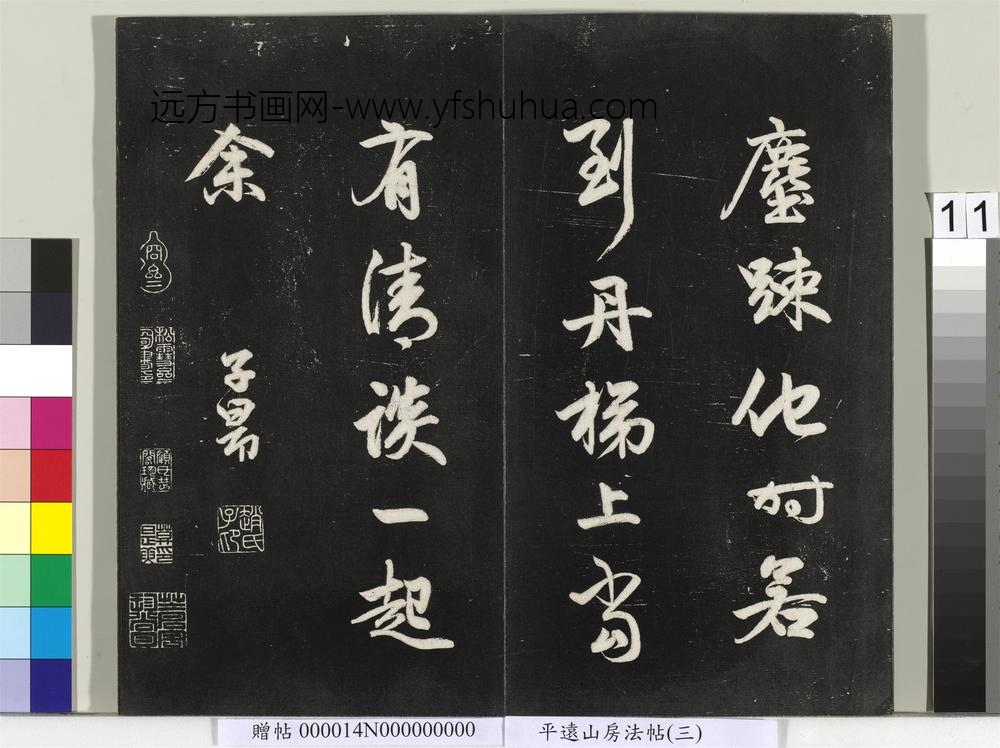 远方书画网-www.yfshuhua.com
塵踈他時若
到丹梯上當
有清談一起
余
子昂
趙氏子昂
11
贈帖 000014N000000000
平遠山房法帖(三)